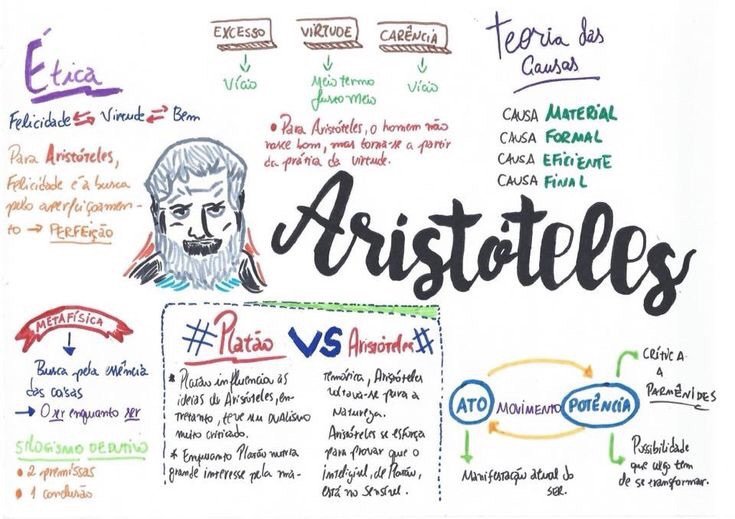 Ética
Felicidade ⇆ Virtude ⇄ Bem
Para Aristóteles,
Felicidade é a busca
pelo aperfeiçoamen-
to → PERFEIÇÃO
EXCESSO
VIRTUDE
CARÊNCIA
Vício
Meio termo
Justo Meio
Vício
• Para Aristóteles, o homem não
nasce bom, mas torna-se a partir
da prática da virtude.
Teoria das
Causas
CAUSA MATERIAL
CAUSA FORMAL
CAUSA EFICIENTE
CAUSA FINAL
Aristóteles
METAFÍSICA
Busca pela essência
das coisas
→ O ser enquanto ser
SILOGISMO DEDUTIVO
• 2 premissas
• 1 conclusão
#Platão VS Aristóteles#
* Platão influencia as
ideias de Aristóteles, en-
tretanto, teve seu dualismo
muito criticado.
* Enquanto Platão nutria
grande interesse pela ma-
temática, Aristóteles
voltava-se para a
Natureza.
Aristóteles se esforça
para provar que o
inteligível, de Platão,
está no sensível.
ATO MOVIMENTO POTÊNCIA
CRÍTICA
A
PARMÊNIDES
Manifestação atual do
ser.
Possibilidade
que algo tem
de se transformar.